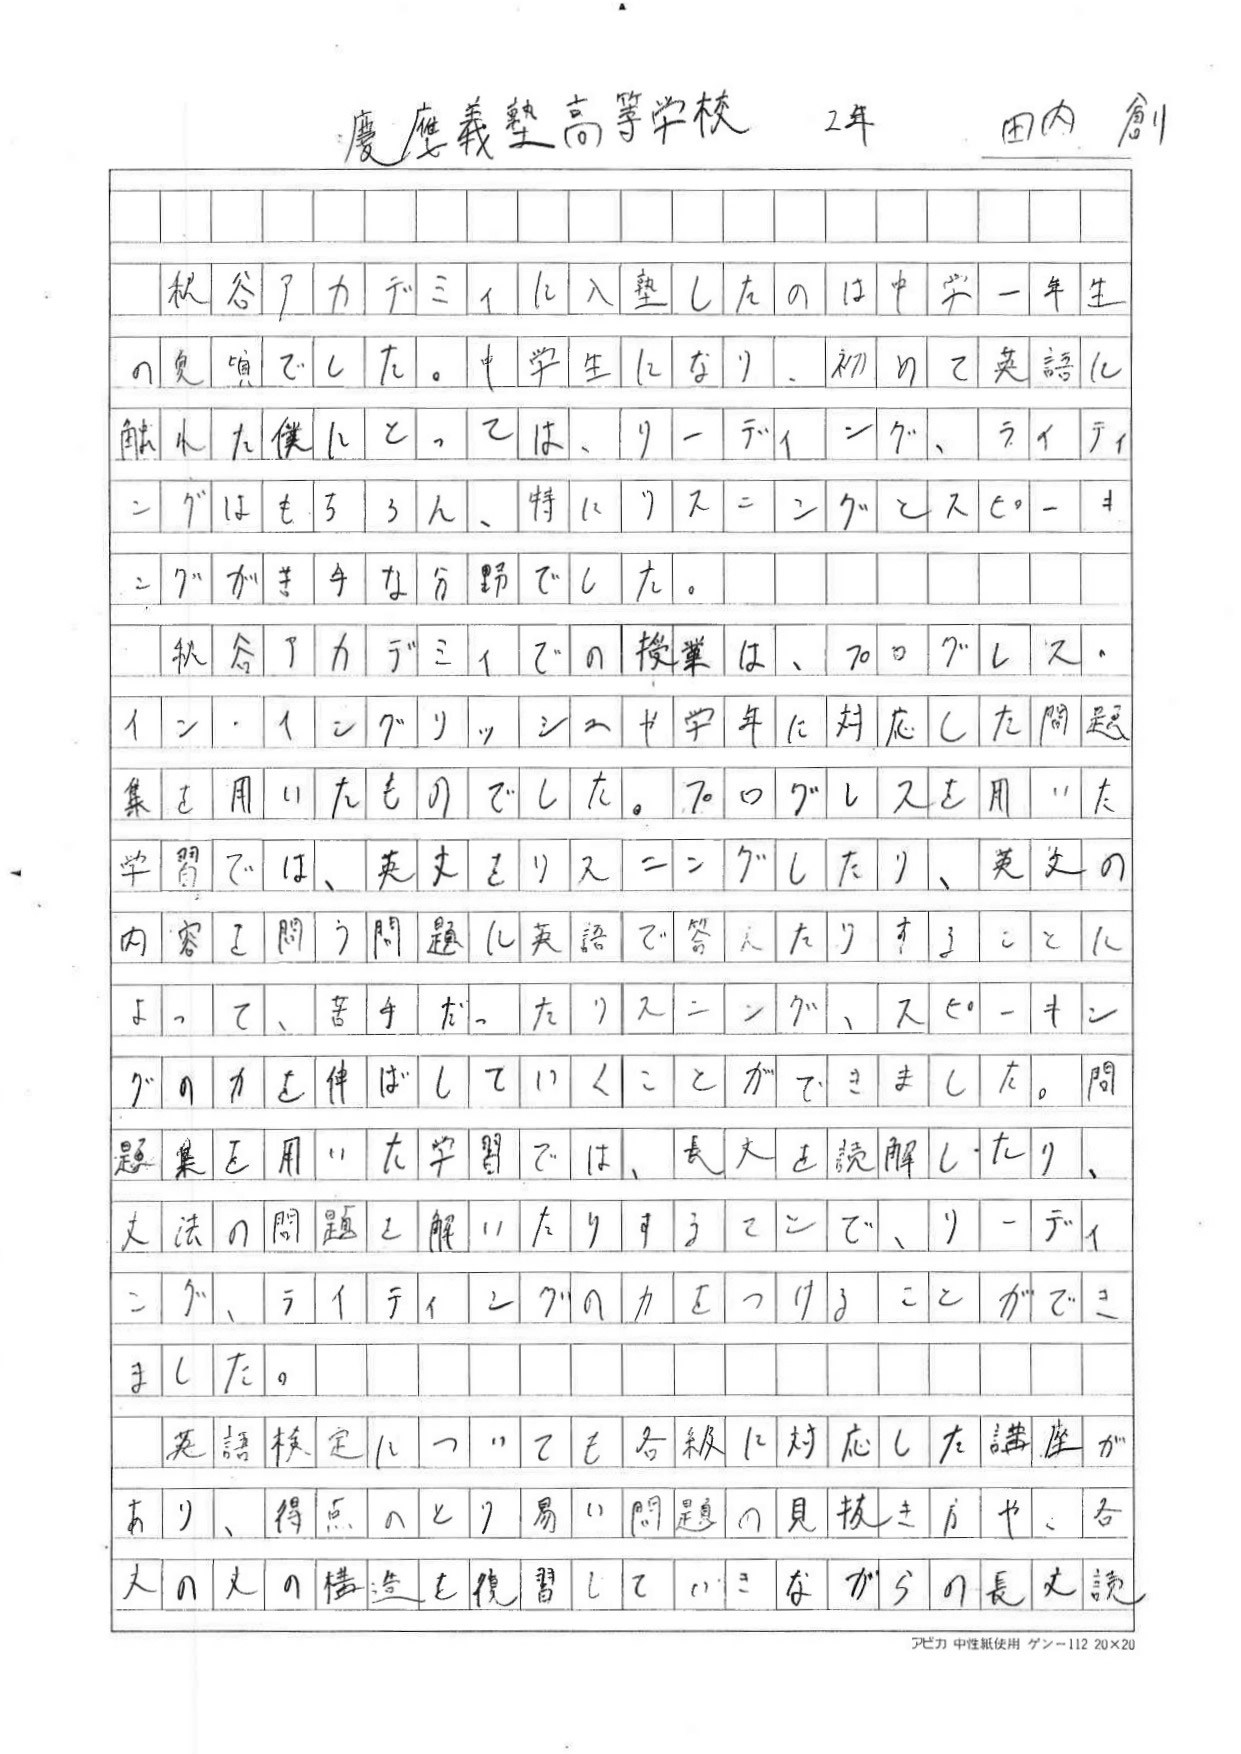 慶應義塾高等学校 2年 田内 創
秋谷アカデミィに入塾したのは中学一年生
の夏頃でした。中学生になり、初めて英語に
触れた僕にとっては、リーディング、ライティ
ングはもちろん、特にリスニングとスピーキ
ングが苦手な分野でした。
秋谷アカデミィでの授業は、プログレス・
イン・イングリッシュや学年に対応した問題
集を用いたものでした。プログレスを用いた
学習では、英文をリスニングしたり、英文の
内容を問う問題に英語で答えたりすることに
よって、苦手だったリスニング、スピーキン
グの力を伸ばしていくことができました。問
題集を用いた学習では、長文を読解したり、
文法の問題を解いたりすることで、リーディ
ング、ライティングの力をつけることができ
ました。
英語検定についても各級に対応した講座が
あり、得点のとり易い問題の見抜き方や、各
文の文の構造を復習していきながらの長文読
アピカ 中性紙使用 ゲンー112 20×20